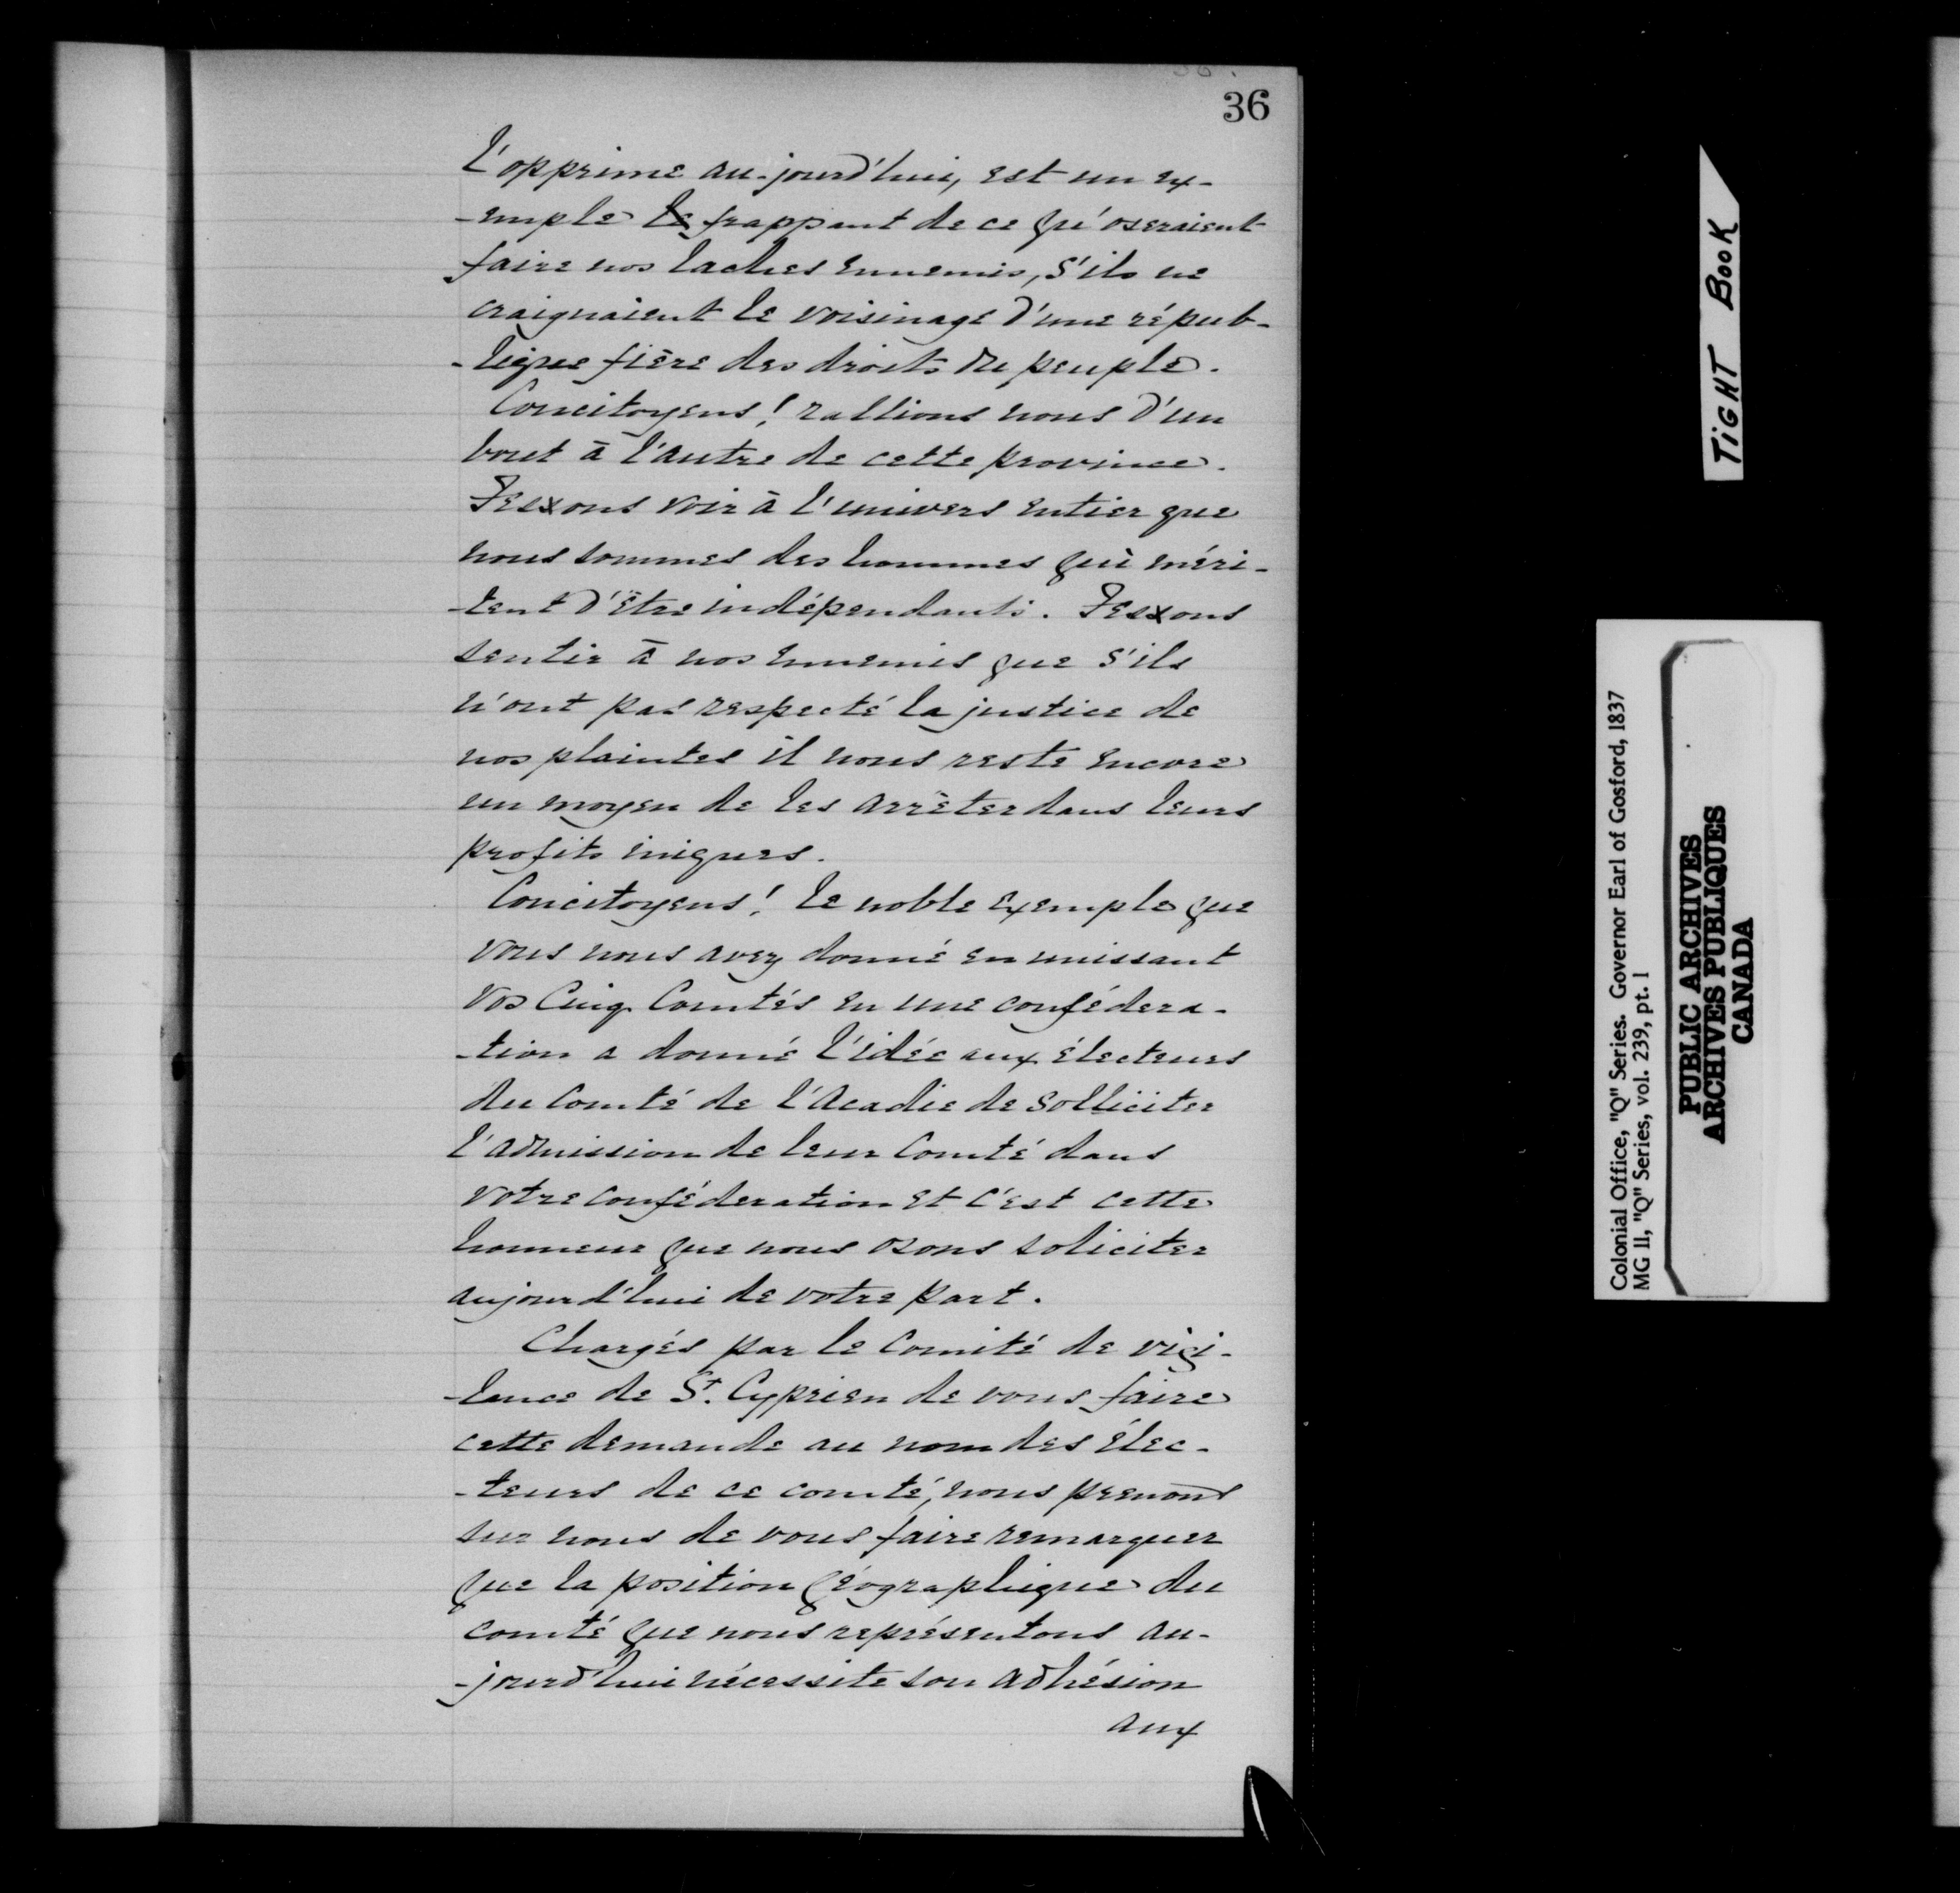 36
L'opprime au-jourd'hui, est un ex-
-emple le frappant de ce qu'oseraient
faire nos laches ennemis, s'ils ne
craignaient le voisinage d'une répub-
-lique fière des droits du peuple.
Concitoyens! rallions nous d'un
bout à l'autre de cette province.
Fesxons voir à l'univers entier que
nous sommes des hommes qui méri-
-tent d'être indépendants. Fesxons
sentir à nos ennemis que s'ils
n'ont pas respecté la justice de
nos plaintes il nous reste encore
un moyen de les arrêter dans leurs
profits iniques.
Concitoyens! le noble exemple que
vous nous avez donné en unissant
vos Cinq Comtés en une confédera-
-tion a donné l'idée aux électeurs
du Comté de l'Acadie de solliciter
l'admission de leur Comté dans
votre conféderation et c'est cette
honneur que nous osons soliciter
aujourd'hui de votre part.
Chargés par le Comité de vigi-
-lance de St. Cyprien de vous faire
cette demande au nom des élec-
-teurs de ce comté, nous prenons
sur nous de vous faire remarquer
que la position géographique du
comté que nous représentons au-
-jourd'hui nécessite son adhésion
aux
TIGHT BOOK
Colonial Office, "Q" Series. Governor Earl of Gosford, 1837
MG 11, "Q" Series, vol. 239, pt. 1
PUBLIC ARCHIVES
ARCHIVES PUBLIQUES
CANADA